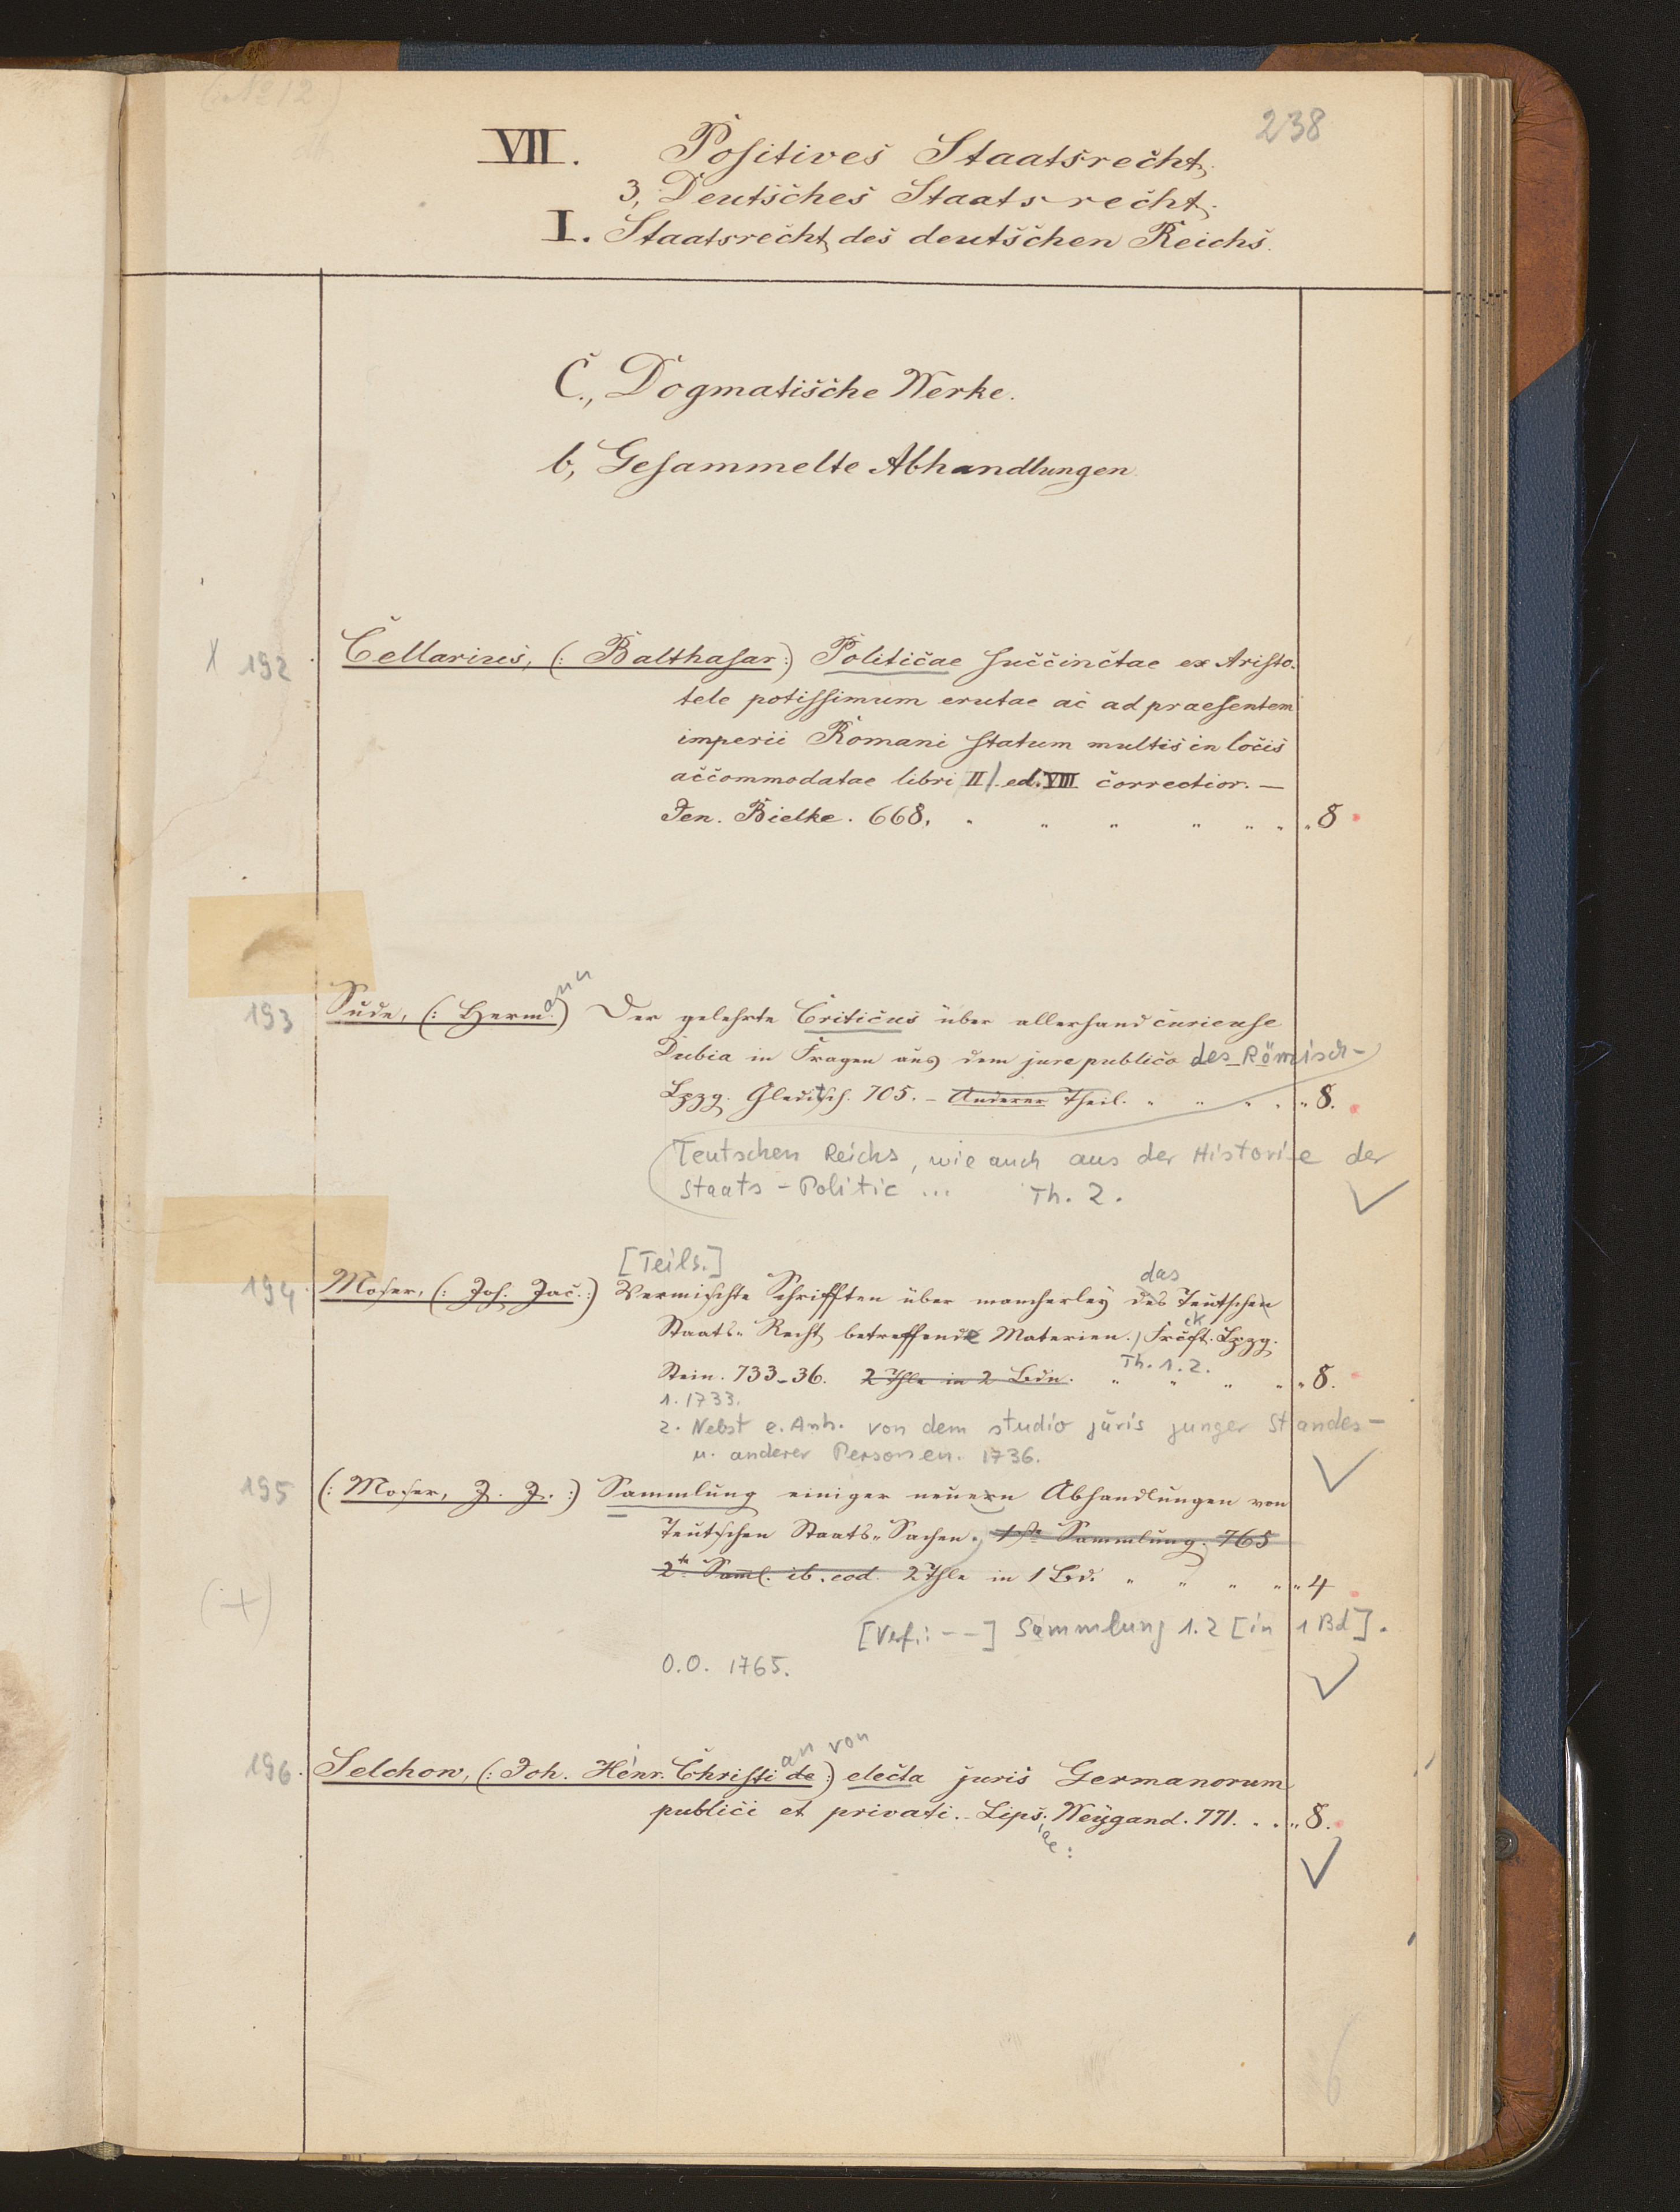 238
VII. Positives Staatsrecht.
3, Deutsches Staatsrecht.
I. Staatsrecht des deutschen Reichs.
C., Dogmatische Werke.
b, Gesammelte Abhandlungen.
X 192. Cellarius, (: Balthasar :) Politicae succinctae ex Aristo-
tele potissimum erutae ac ad praesentem
imperii Romani statum multis in locis
accommodatae libri II. ed. VIII correctior. —
Jen. Bielke. 668. " " " " " " " 8
193 Sude, (: Hermann) Der gelehrte Criticus über allerhand curieuse
Dubia in Fragen aus dem jure publico des Römisch-
Lpzg. Gleditsch. 705. - Anderer Theil. " " " " " 8.
Teutschen Reichs, wie auch aus der Historie der
Staats-Politic ... Th. 2.
[Teils.] das
194. Moser, (: Joh. Jac. :) Vermischte Schrifften über mancherley des Teutschen
Staats- Recht betreffende Materien. Frckft. Lpzg.
Stein. 733-36. 2 Thle in 2 Bdn. Th. 1. 2. " " " " " 8.
1. 1733.
2. Nebst e. Anh. von dem studio juris junger Standes-
u. anderer Personen. 1736.
195 (: Moser, J. J. :) Sammlung einiger neuern Abhandlungen von
Teutschen Staats- Sachen. 1ste Sammlung. 765
2te Saml. ib. eod. 2 Thle in 1 Bd. " " " " " 4
(+)
[Verf.: --] Sammlung 1. 2 [in 1 Bd].
O.O. 1765.
an von
196. Selchow, (: Joh. Heinr. Christi de :) electa juris Germanorum
publici et privati. - Lips. Weÿgand. 771. . . " 8.
iae: